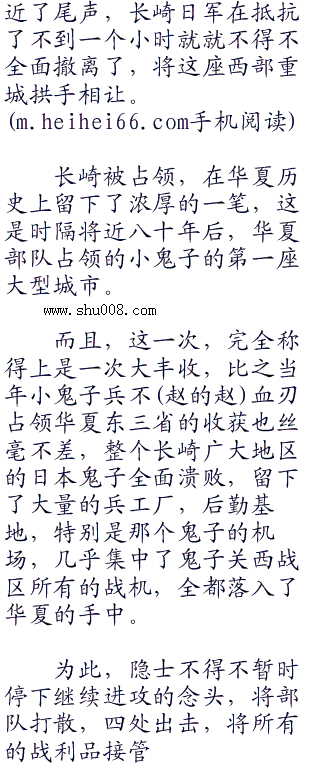 近了尾声，长崎日军在抵抗
了不到一个小时就就不得不
全面撤离了，将这座西部重
城拱手相让。
(m.heihei66.com手机阅读)
长崎被占领，在华夏历
史上留下了浓厚的一笔，这
是时隔将近八十年后，华夏
部队占领的小鬼子的第一座
大型城市。
www.shu008.com
而且，这一次，完全称
得上是一次大丰收，比之当
年小鬼子兵不(赵的赵)血刃
占领华夏东三省的收获也丝
毫不差，整个长崎广大地区
的日本鬼子全面溃败，留下
了大量的兵工厂，后勤基
地，特别是那个鬼子的机
场，几乎集中了鬼子关西战
区所有的战机，全都落入了
华夏的手中。
为此，隐士不得不暂时
停下继续进攻的念头，将部
队打散，四处出击，将所有
的战利品接管